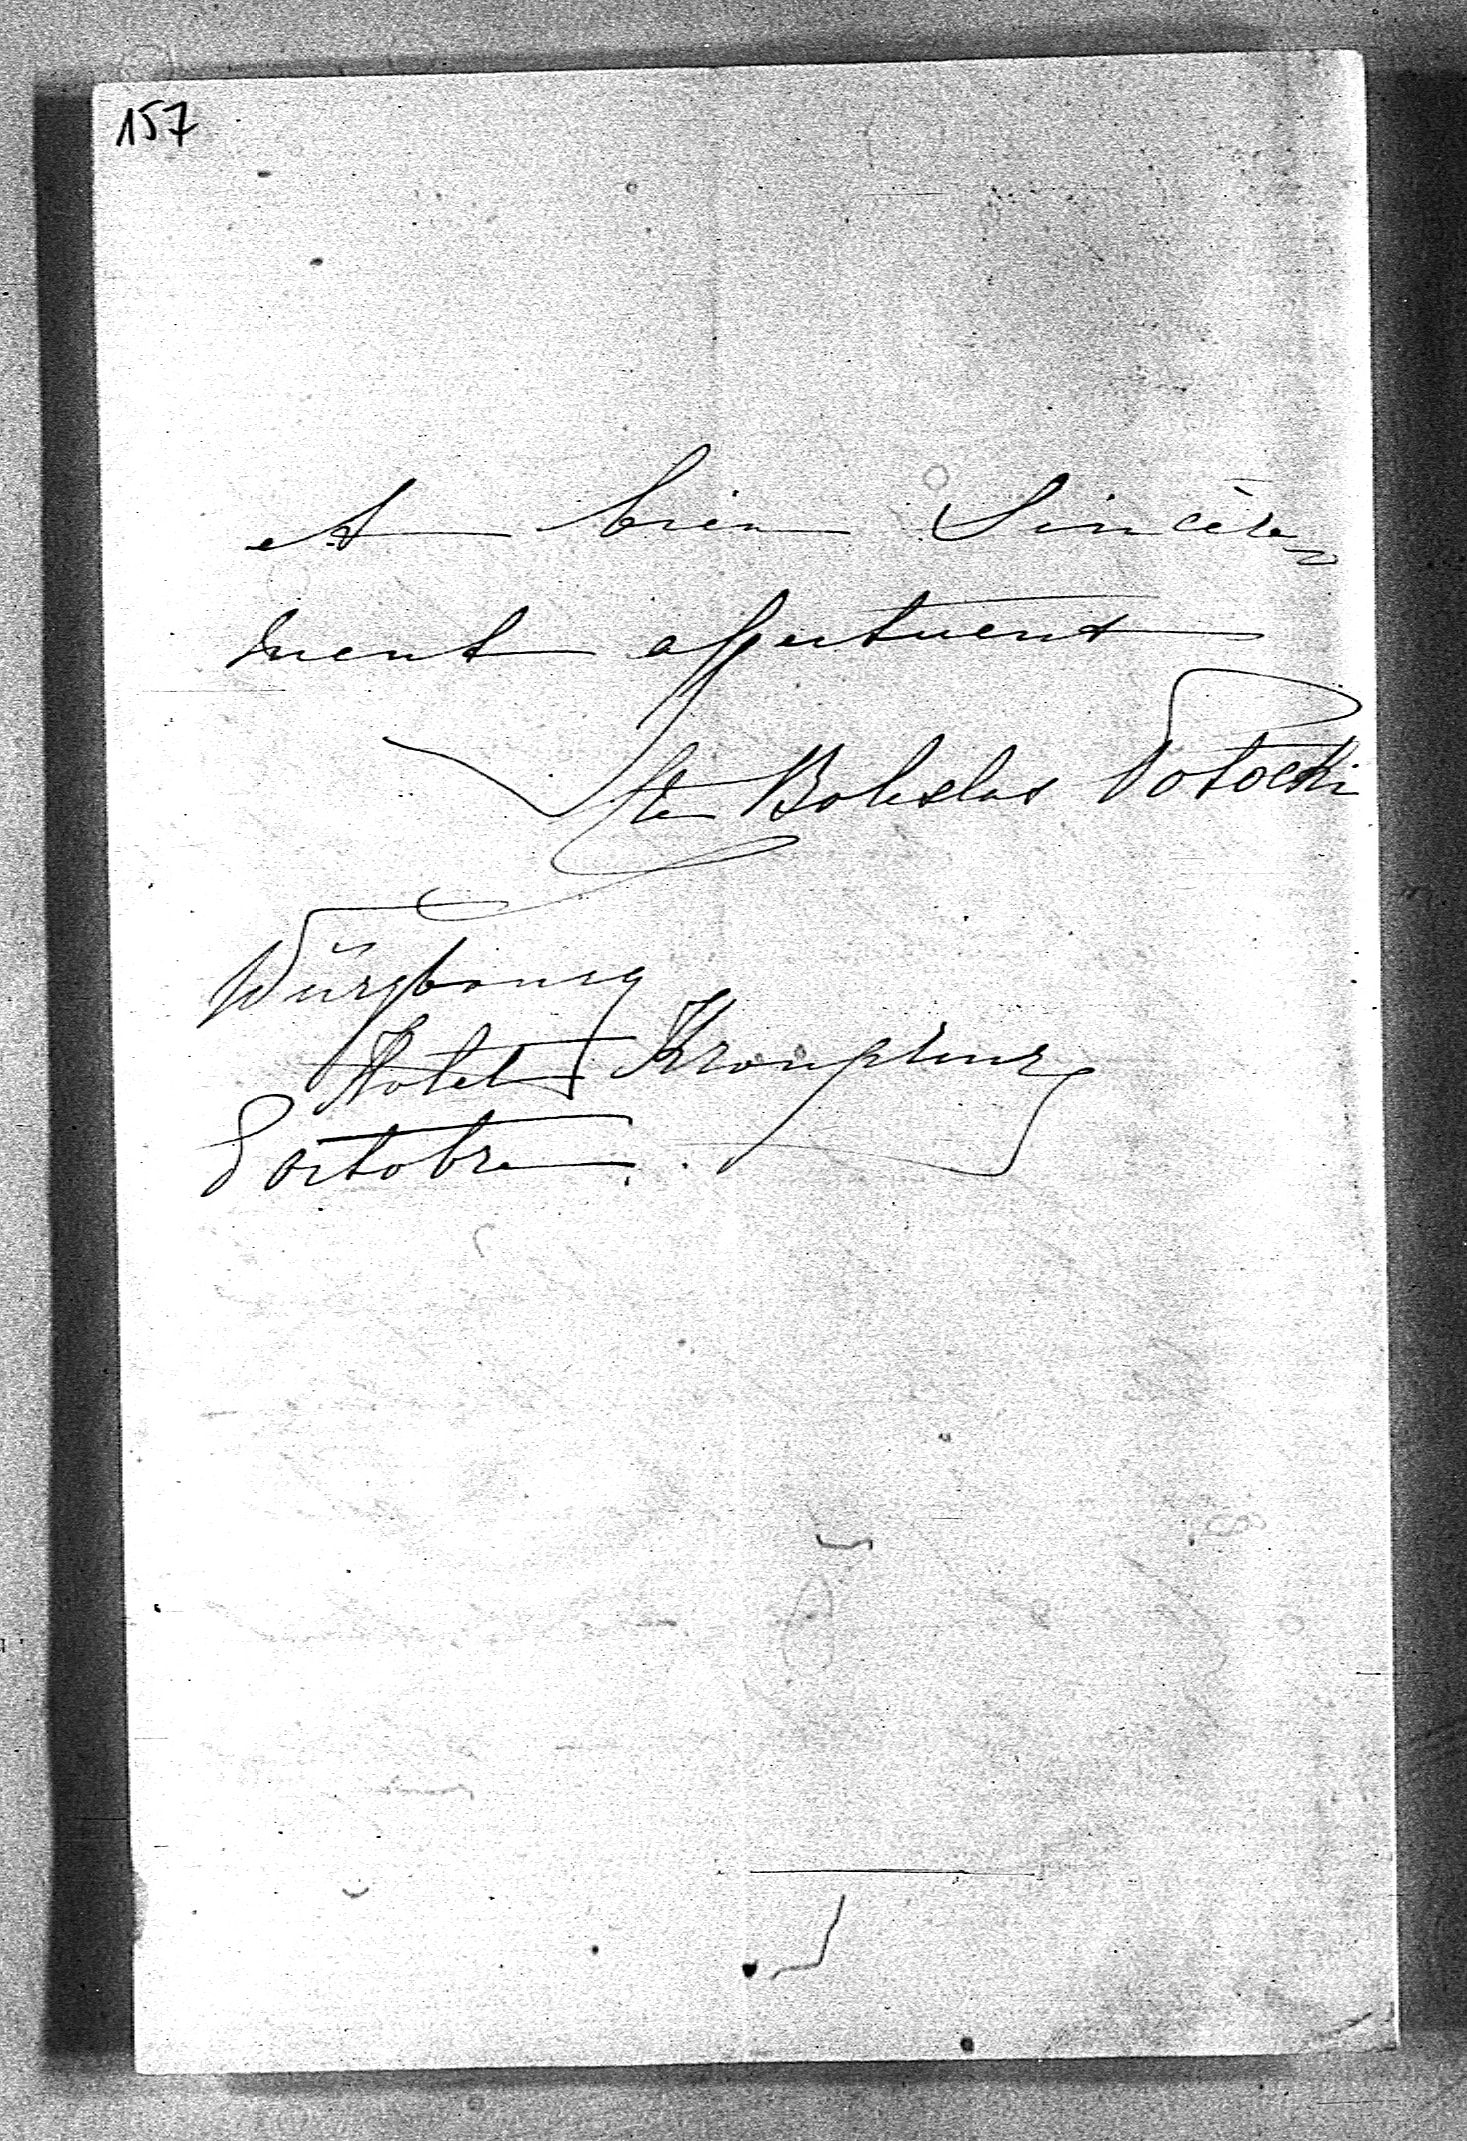 157
et bien sincère
ment affectueux
Cte Boleslas Potocki
Würzbourg
Hotel Kronprinz
8 octobre.